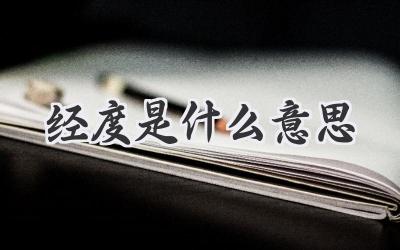 经度是什么意思